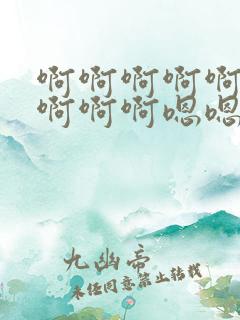 啊啊啊啊啊
啊啊啊嗯嗯
九幽帝
未经同意禁止转载